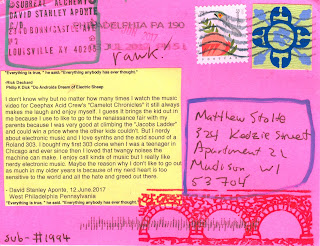 SUBREAL ALCHEMY
DAVID STANLEY APONTE
LOUISVILLE KY
PHILADELPHIA PA 190
rawk.
"Everything is true," he said. "Everything anybody has ever thought."
- Rick Deckard
Philip K Dick "Do Androids Dream of Electric Sheep
I don't know why but no matter how many times I watch the music
video for Ceephax Acid Crew's "Camelot Chronicles" it still always
makes me laugh and enjoy myself. I guess it brings the kid out in
me because I use to like to go to the renaissance fair with my
parents because I was very good at climbing the "Jacobs Ladder"
and could win a price where the older kids couldn't. But I nerdy
about electronic music and I love synths and the acid sound of a
Roland 303. I bought my first 303 clone when I was a teenager in
Chicago and ever since than I loved that twangy noises the
machine can make. I enjoy all kinds of music but I really like
nerdy electronic music. Maybe the reason why I don't like to go out
as much in my older years is because of my nerd heart is too
sensitive to the world and all the hate and greed out there.
- David Stanley Aponte, 12 June 2017
West Philadelphia Pennsylvania
"Everything is true," he said. "Everything anybody has ever thought."
Matthew Stolte
324 Kedzie Street
Apartment 21
Madison WI
53704
sub-#1994